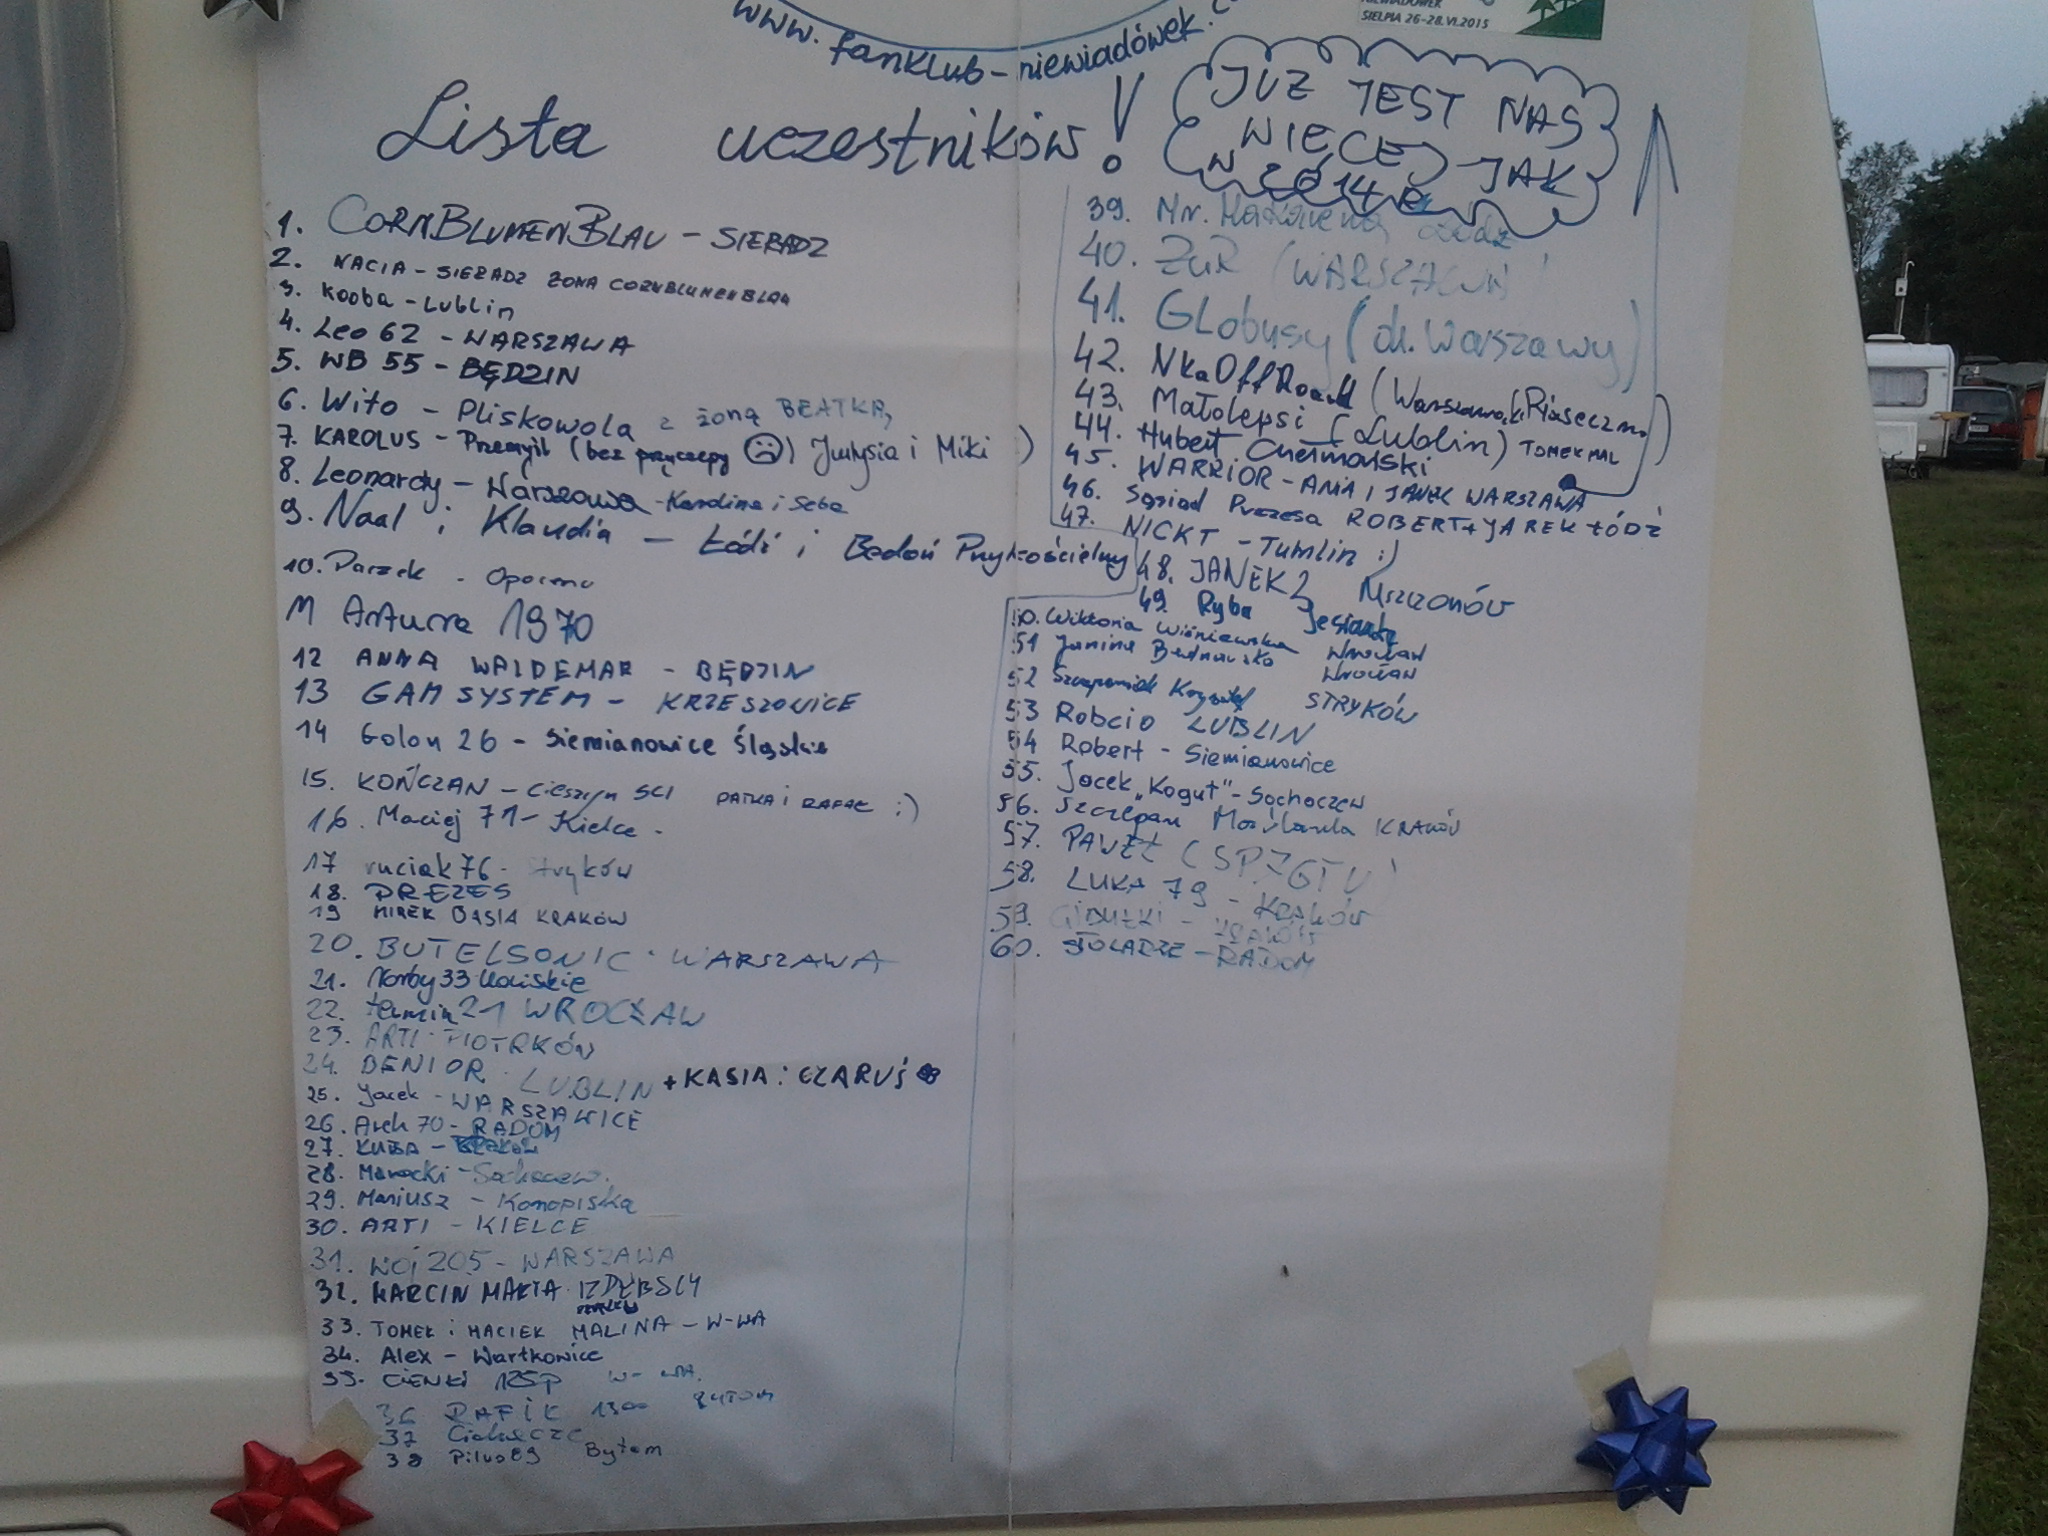 www.fanklub-niewiadówek.
NIEWIADÓWEK
SIELPIA 26-28.VI.2015
Lista uczestników!
JUZ JEST NAS
WIĘCEJ JAK
W 2014 R
1. CORNBLUMENBLAU - SIERADZ
2. NACIA - SIERADZ ŻONA CORNBLUMENBLAU
3. Kooba - Lublin
4. Leo 62 - WARSZAWA
5. WB 55 - BĘDZIN
6. Wito - Pliskowola z żoną BEATKĄ,
7. KAROLUS - Przemyśl (bez przyczepy ☹) Justysia i Miki :)
8. Leonardy - Warszawa - Karolina i Seba
9. Naal i Klaudia - Łódź i Bedoń Przykościelny
10. Parzek - Opoczno
11 Arturro 1970
12 ANNA WALDEMAR - BĘDZIN
13 GAM SYSTEM - KRZESZOWICE
14 Golon 26 - Siemianowice Śląskie
15. KOŃCZAN - Cieszyn SCI PATKA i RAFAŁ :)
16. Maciej 71 - Kielce -
17 ruciak 76 - Stryków
18. PREZES
19 MIREK BASIA KRAKÓW
20. BUTELSONIC - WARSZAWA
21. Norby 33 Końskie
22. 21 WROCŁAW
23. ARTI - PIOTRKÓW
24. BENIOR - LUBLIN + KASIA i CZARUŚ
25. Jacek - WARSZAWICE
26. Arek 70 - RADOM
27. KUBA - KRAKÓW
28. Marecki - Sochaczew.
29. Mariusz - Konopiska
30. ARTI - KIELCE
31. WOJ 205 - WARSZAWA
32. MARCIN MARTA IZDEBSCY
33. TOMEK i MACIEK MALINA - W-WA
34. Alex - Wartkowice
35. CIENKI 125p W-WA.
36 RAFIK 1300 BYTOM
37
38 Pilus89 Bytom
39. Mr. Makarena Łódź
40. ŻUR (WARSZAWA)
41. GLobusy (ok. Warszawy)
42. NKaOffRoad (Warszawa/k Piaseczna)
43. Małolepsi (Lublin) TOMEK MAL
44. Hubert Czermański
45. WARRIOR - ANIA I JANEK WARSZAWA
46. Sąsiad Prezesa ROBERT + JAREK ŁÓDŹ
47. NICKT - Tumlin :)
48. JANEK 2 Mszczonów
49. Ryba
50. Wiktoria Wiśniewska Wrocław
51 Janina Bednarska Wrocław
52 Szczepaniak Krzysztof STRYKÓW
53 Robcio LUBLIN
54 Robert - Siemianowice
55. Jacek „Kogut" - Sochaczew
56. Szczepan KRAKÓW
57. PAWEŁ (SP7GTU)
58. LUKA 79 - KRAKÓW
59. - KRAKÓW
60. - RADOM